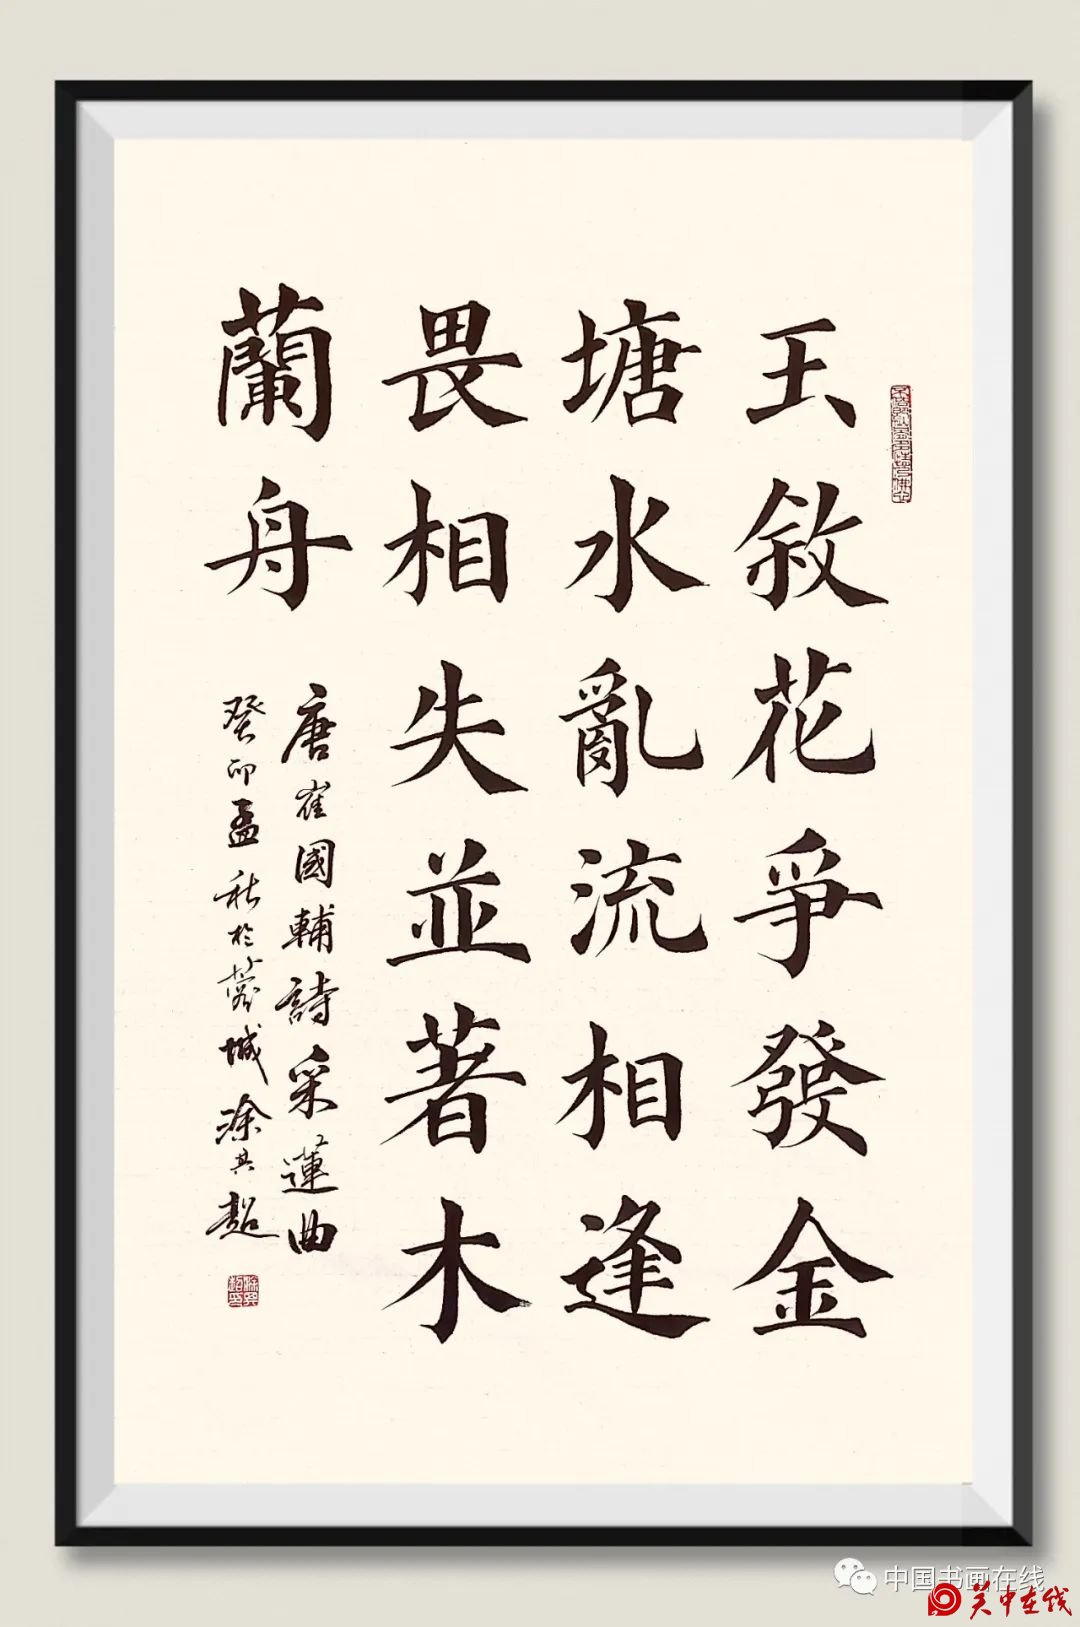 玉敘花爭發金
塘水亂流相逢
畏相失並著木
蘭舟
唐崔國輔詩采蓮曲
癸卯孟秋於蓉城涂其超
中国书画在线
关中在线